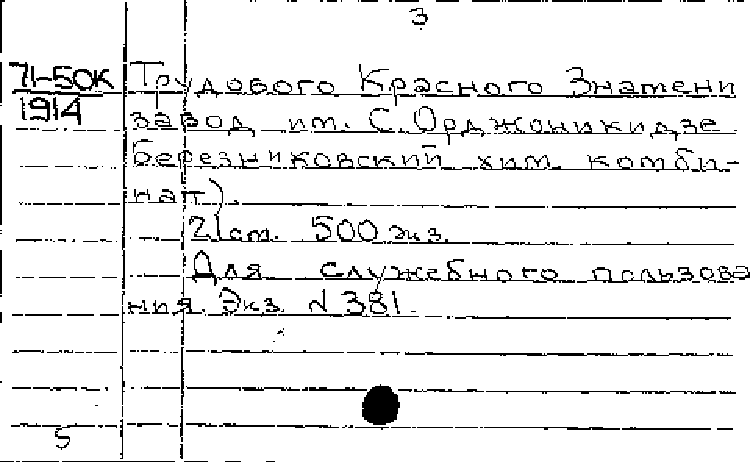 3
71-50К Трудового Красного Знамени
1914 завод им. С. Орджоникидзе.
Березниковский хим. комби-
нат).
21 ст. 500 экз.
Для служебного пользова
ния. Экз. № 381.
5